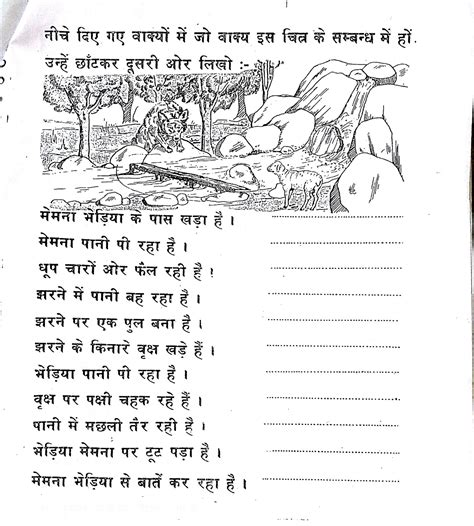 नीचे दिए गए वाक्यों में जो वाक्य इस चित्र के सम्बन्ध में हों.
उन्हें छाँटकर दूसरी ओर लिखो :-
मेमना भेड़िया के पास खड़ा है ।
मेमना पानी पी रहा है ।
धूप चारों ओर फैल रही है ।
झरने में पानी बह रहा है ।
झरने पर एक पुल बना है ।
झरने के किनारे वृक्ष खड़े हैं ।
भेड़िया पानी पी रहा है ।
वृक्ष पर पक्षी चहक रहे हैं ।
पानी में मछली तैर रही है ।
भेड़िया मेमना पर टूट पड़ा है ।
मेमना भेड़िया से बातें कर रहा है ।